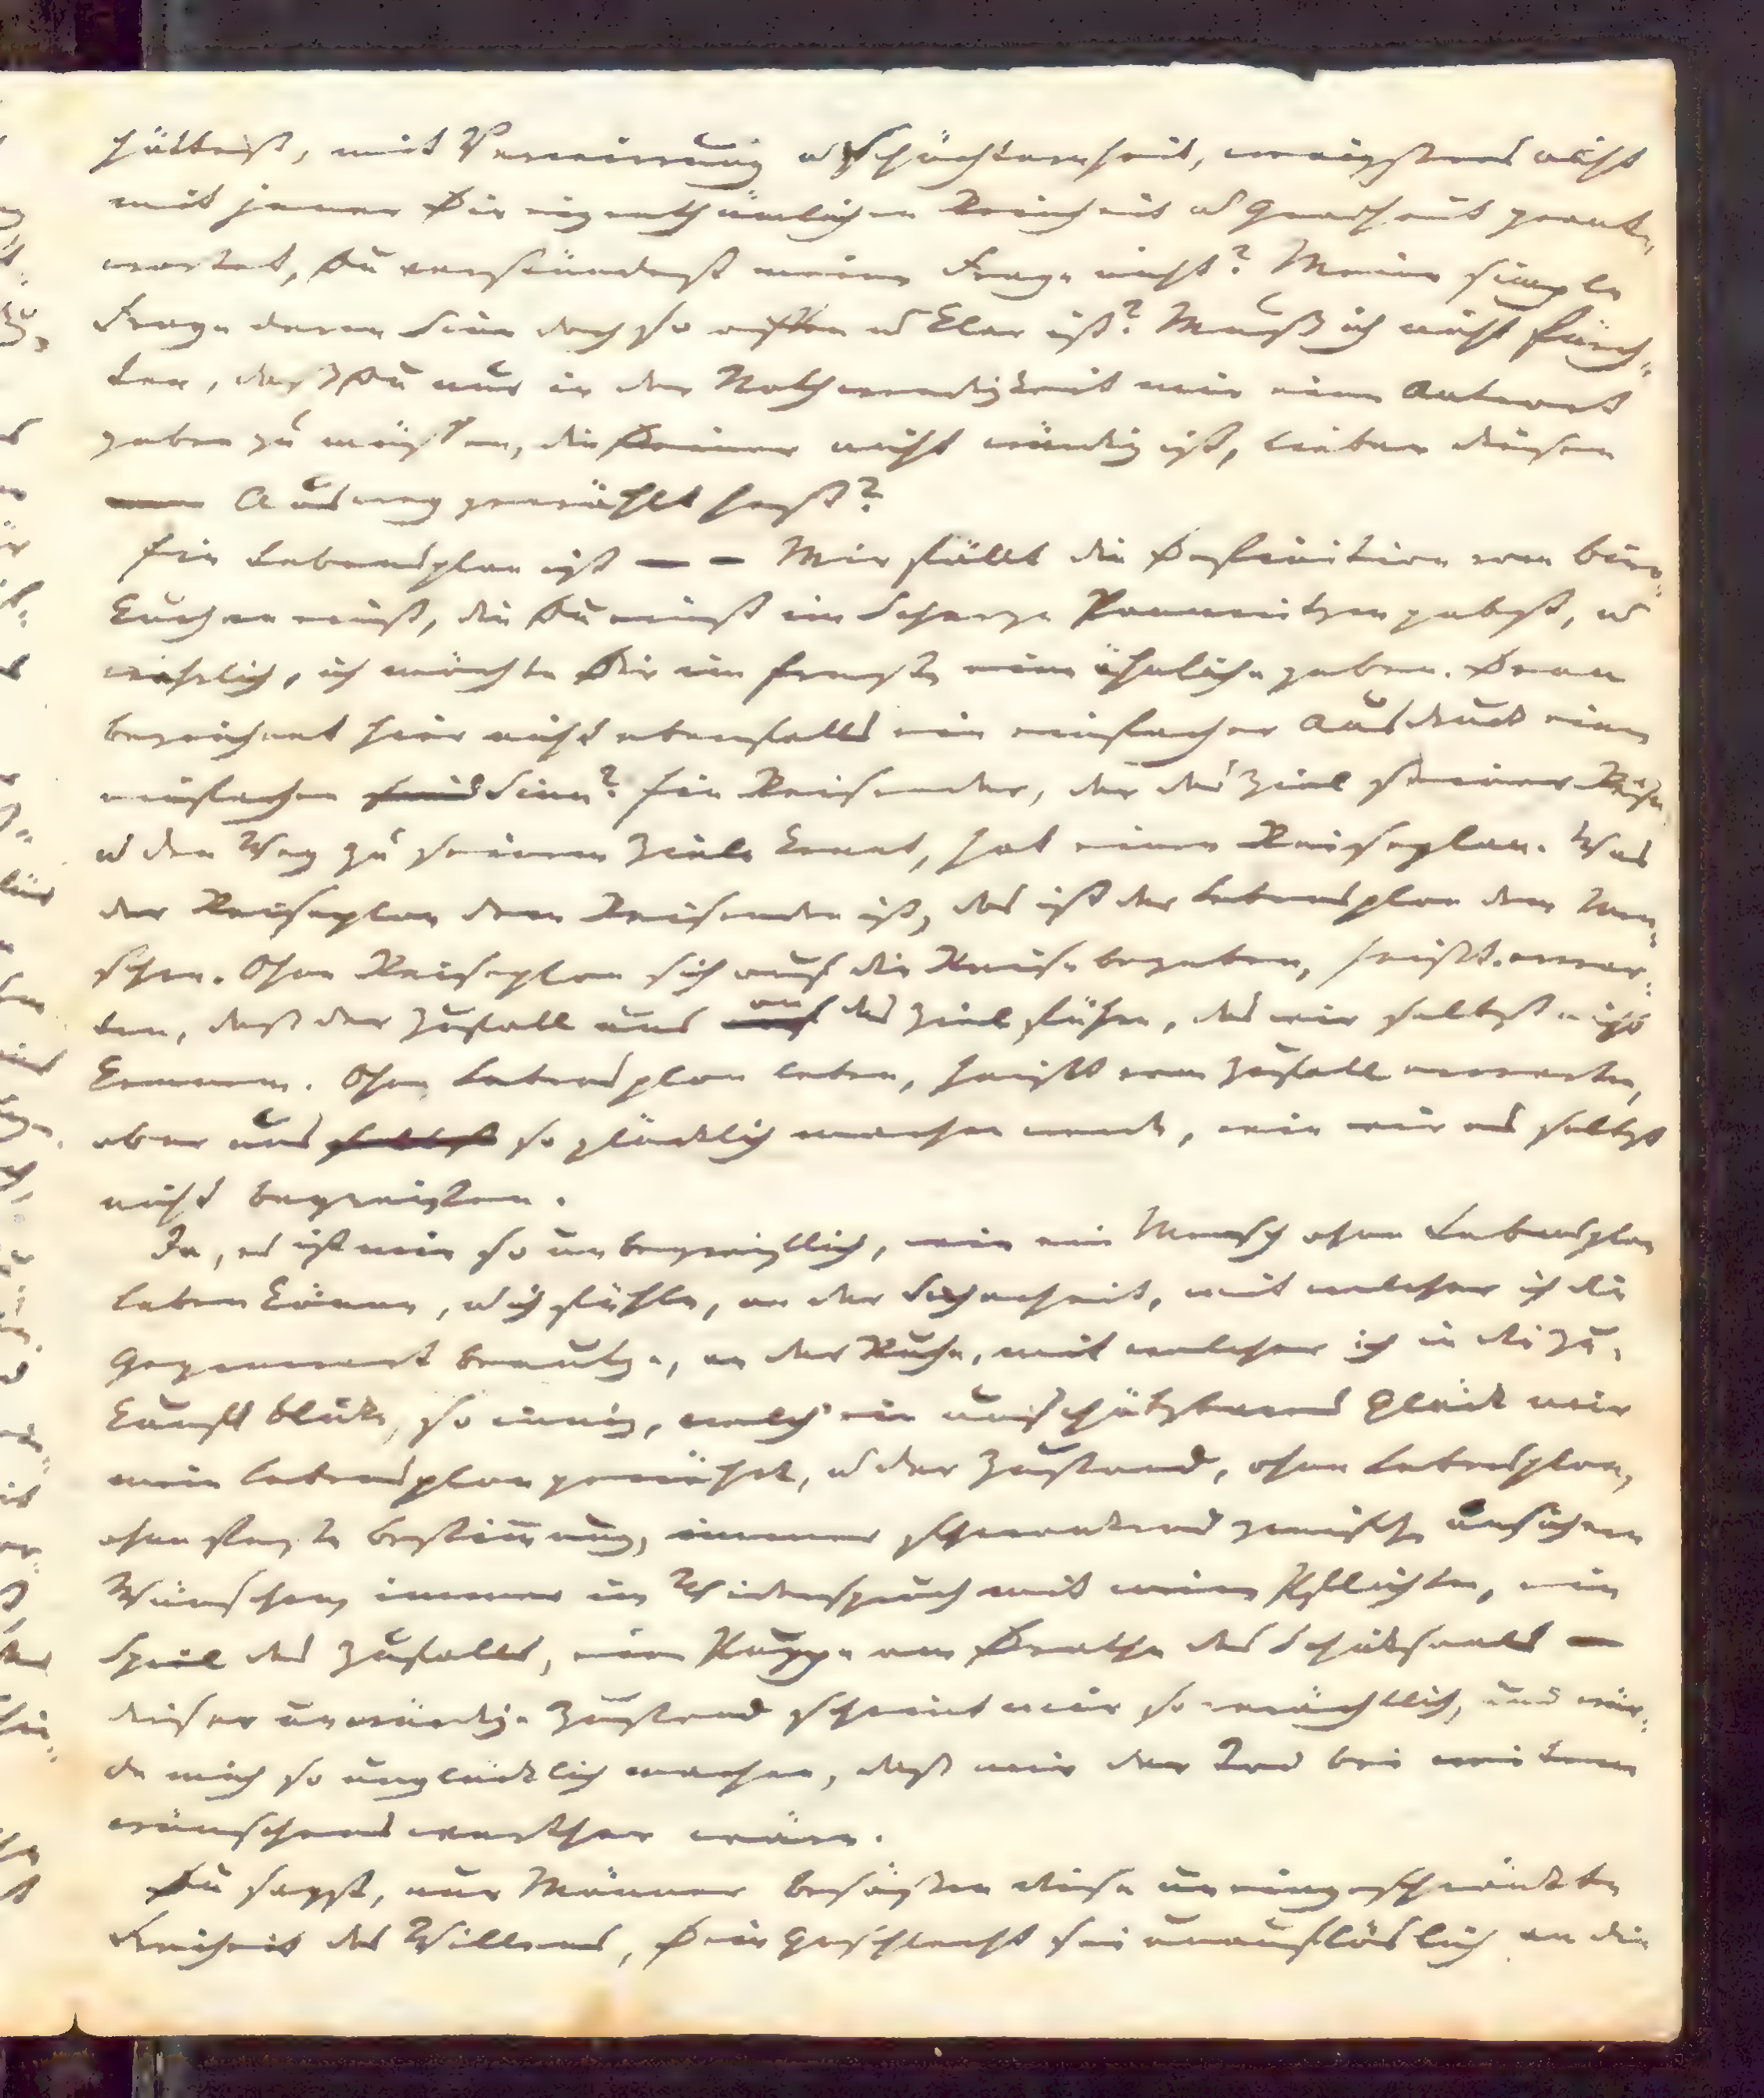 hältniß, mit Verwirrung u Schüchternheit, wenigstens nicht
mit jener Dir eigenthümlichen Reinheit u Gradheit geant-
wortet, Du verständest meine Frage nicht? Meine simple
Frage deren Sinn doch so offen u klar ist? Muß ich nicht fürch-
ten, daß Du nur in der Nothwendigkeit mir eine Antwort
geben zu müssen, die Deiner nicht würdig ist, lieber diesen
Ausweg gewählt hast?
Ein Lebensplan ist — — Mir fällt die Definition vom Birn-
kuchen einst, die Du einst im Scherze Pannwitzen gabst, u
wahrlich, ich möchte Dir im Ernste eine ähnliche geben. Denn
bezeichnet hier nicht ebenfalls ein einfacher Ausdruck einen
einfachen Sinn? Ein Reisender, der das Ziel seiner Reise
u den Weg zu seinem Ziele kennt, hat einen Reiseplan. Was
der Reiseplan dem Reisenden ist, das ist der Lebensplan dem Men-
schen. Ohne Reiseplan sich auf die Reise begeben, heißt erwar-
ten, daß der Zufall uns an das Ziel führe, das wir selbst nicht
kennen. Ohne Lebensplan leben, heißt vom Zufall erwarten,
ober uns so glücklich machen werde, wie wir es selbst
nicht begreifen.
Ja, es ist mir so unbegreiflich, wie ein Mensch ohne Lebensplan
leben könne, u ich fühle, an der Sicherheit, mit welcher ich die
Gegenwart benutze, an der Ruhe, mit welcher ich in die Zu-
kunft blicke, so innig, welch' ein unschätzbares Glück mir
mein Lebensplan gewährt, u der Zustand, ohne Lebensplan,
ohne feste Bestimmung, immer schwankend zwischen unsichern
Wünschen, immer im Widerspruch mit meinen Pflichten, ein
Spiel des Zufalls, eine Puppe am Drathe des Schicksaals —
dieser unwürdige Zustand scheint mir so verächtlich, und wür-
de mich so unglücklich machen, daß mir der Tod bei weitem
wünschenswerther wäre.
Du sagst, nur Männer besäßen diese uneingeschränkte
Freiheit des Willens, Dein Geschlecht sei unauflöslich an die